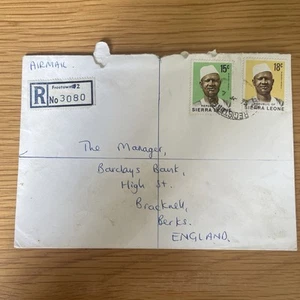 AIRMAIL
Freetown #2
R No 3080
15c
REPUBLIC OF
SIERRA LEONE
18c
REPUBLIC OF
SIERRA LEONE
The Manager,
Barclays Bank,
High St.
Bracknell,
Berks.
ENGLAND.